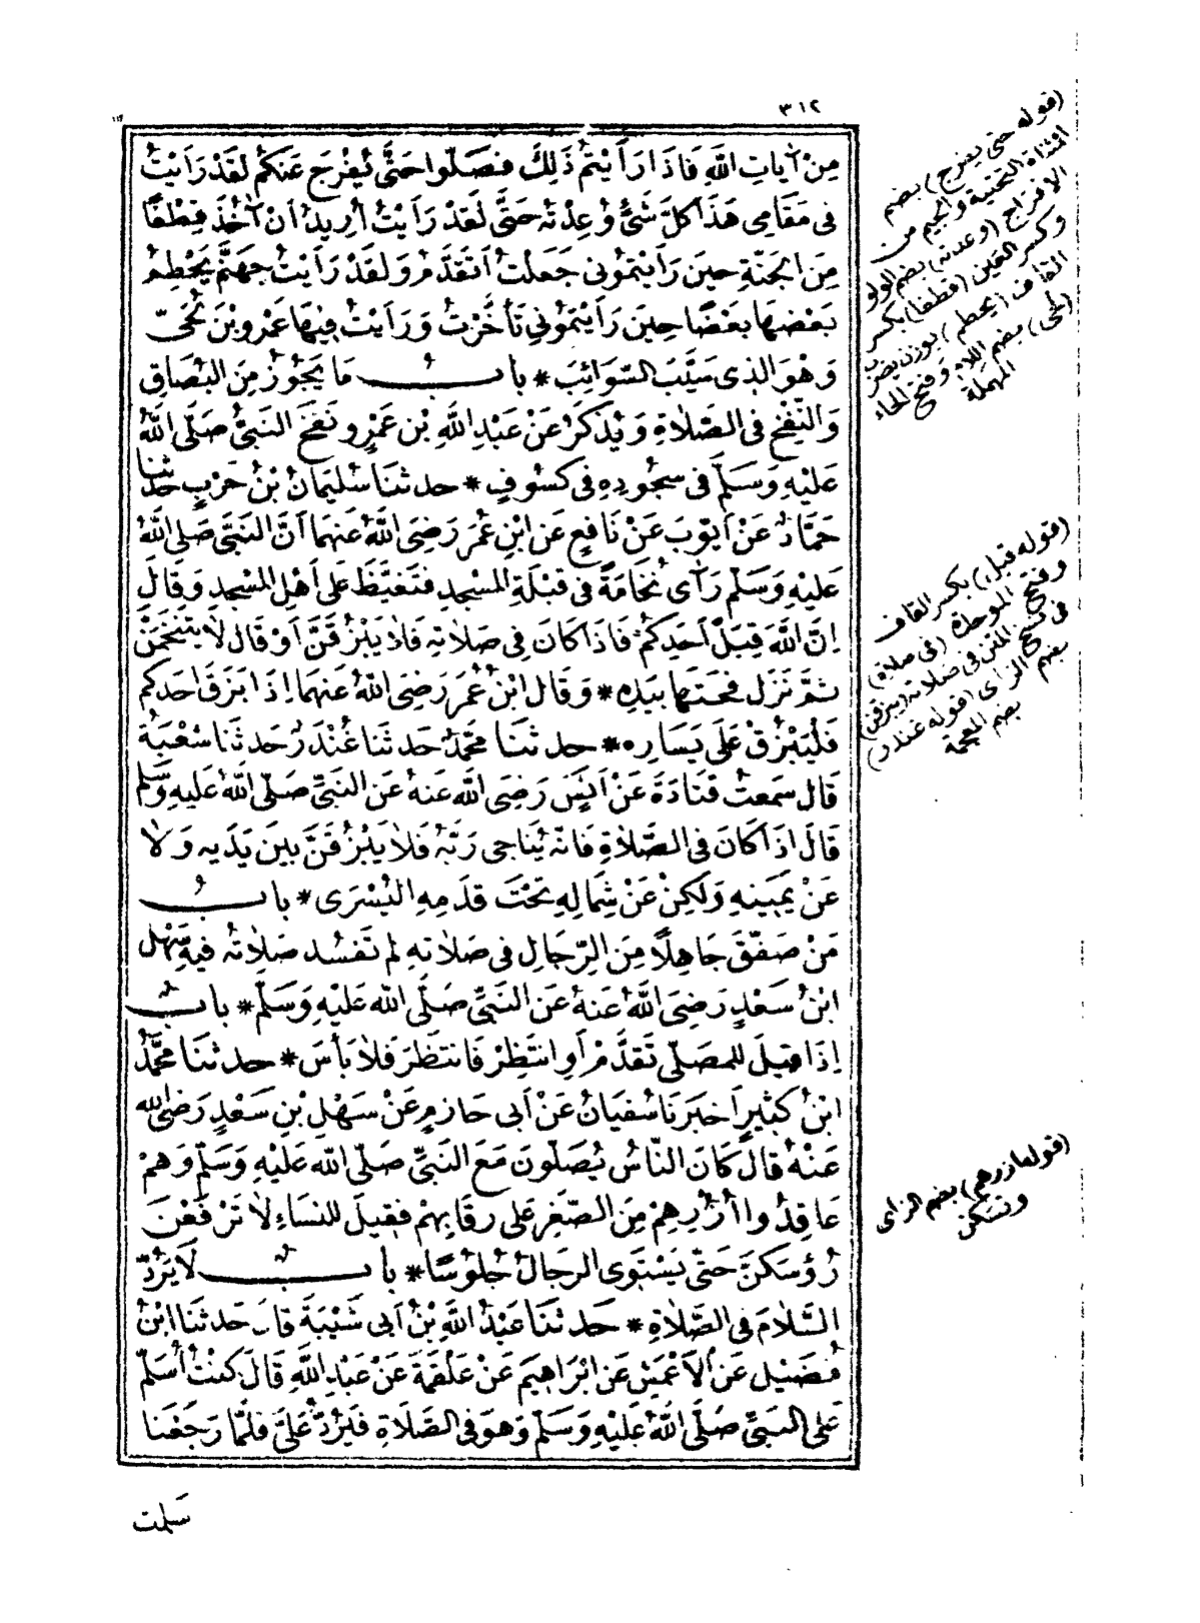 ٣١٢
مِنْ آيَاتِ اللّٰهِ فَاِذَا رَأَيْتُمْ ذَلِكَ فَصَلُّوا حَتَّى يُفْرَجَ عَنْكُمْ لَقَدْ رَأَيْتُ
فِى مَقَامِى هَذَا كُلَّ شَىْءٍ وُعِدْتُهُ حَتَّى لَقَدْ رَأَيْتُ أُرِيدُ أَنْ آخُذَ قِطْفًا
مِنَ الْجَنَّةِ حِينَ رَأَيْتُمُونِى جَعَلْتُ أَتَقَدَّمُ وَلَقَدْ رَأَيْتُ جَهَنَّمَ يَحْطِمُ
بَعْضُهَا بَعْضًا حِينَ رَأَيْتُمُونِى تَأَخَّرْتُ وَرَأَيْتُ فِيهَا عَمْرَو بْنَ لُحَىٍّ
وَهُوَ الَّذِى سَيَّبَ السَّوَائِبَ * بَابُ مَا يَجُوزُ مِنَ الْبُصَاقِ
وَالنَّفْخِ فِى الصَّلَاةِ وَيُذْكَرُ عَنْ عَبْدِ اللّٰهِ بْنِ عَمْرٍو نَفَخَ النَّبِىُّ صَلَّى اللّٰهُ
عَلَيْهِ وَسَلَّمَ فِى سُجُودِهِ فِى كُسُوفٍ * حدثنا سُلَيْمَانُ بْنُ حَرْبٍ حدثنا
حَمَّادٌ عَنْ أَيُّوبَ عَنْ نَافِعٍ عَنِ ابْنِ عُمَرَ رَضِىَ اللّٰهُ عَنْهُمَا أَنَّ النَّبِىَّ صَلَّى اللّٰهُ
عَلَيْهِ وَسَلَّمَ رَأَى نُخَامَةً فِى قِبْلَةِ الْمَسْجِدِ فَتَغَيَّظَ عَلَى أَهْلِ الْمَسْجِدِ وَقَالَ
اِنَّ اللّٰهَ قِبَلَ أَحَدِكُمْ فَاِذَا كَانَ فِى صَلَاتِهِ فَلَا يَبْزُقَنَّ أَوْ قَالَ لَا يَتَنَخَّمَنَّ
ثُمَّ نَزَلَ فَحَتَّهَا بِيَدِهِ * وَقَالَ ابْنُ عُمَرَ رَضِىَ اللّٰهُ عَنْهُمَا اِذَا بَزَقَ أَحَدُكُمْ
فَلْيَبْزُقْ عَلَى يَسَارِهِ * حدثنا مُحَمَّدٌ حدثنا غُنْدَرٌ حدثنا شُعْبَةُ
قَالَ سَمِعْتُ قَتَادَةَ عَنْ أَنَسٍ رَضِىَ اللّٰهُ عَنْهُ عَنِ النَّبِىِّ صَلَّى اللّٰهُ عَلَيْهِ وَسَلَّمَ
قَالَ اِذَا كَانَ فِى الصَّلَاةِ فَاِنَّهُ يُنَاجِى رَبَّهُ فَلَا يَبْزُقَنَّ بَيْنَ يَدَيْهِ وَلَا
عَنْ يَمِينِهِ وَلَكِنْ عَنْ شِمَالِهِ تَحْتَ قَدَمِهِ الْيُسْرَى * بَابُ
مَنْ صَفَّقَ جَاهِلًا مِنَ الرِّجَالِ فِى صَلَاتِهِ لَمْ تَفْسُدْ صَلَاتُهُ فِيهِ سَهْلُ
ابْنُ سَعْدٍ رَضِىَ اللّٰهُ عَنْهُ عَنِ النَّبِىِّ صَلَّى اللّٰهُ عَلَيْهِ وَسَلَّمَ * بَابٌ
اِذَا قِيلَ لِلْمُصَلِّى تَقَدَّمْ أَوِ انْتَظِرْ فَانْتَظَرَ فَلَا بَأْسَ * حدثنا مُحَمَّدُ
ابْنُ كَثِيرٍ أَخْبَرَنَا سُفْيَانُ عَنْ أَبِى حَازِمٍ عَنْ سَهْلِ بْنِ سَعْدٍ رَضِىَ اللّٰهُ
عَنْهُ قَالَ كَانَ النَّاسُ يُصَلُّونَ مَعَ النَّبِىِّ صَلَّى اللّٰهُ عَلَيْهِ وَسَلَّمَ وَهُمْ
عَاقِدُوا أُزُرِهِمْ مِنَ الصِّغَرِ عَلَى رِقَابِهِمْ فَقِيلَ لِلنِّسَاءِ لَا تَرْفَعْنَ
رُؤُسَكُنَّ حَتَّى يَسْتَوِىَ الرِّجَالُ جُلُوسًا * بَابٌ لَا يَرُدُّ
السَّلَامَ فِى الصَّلَاةِ * حَدثنا عَبْدُ اللّٰهِ بْنُ أَبِى شَيْبَةَ قَالَ حَدثنا ابْنُ
فُضَيْلٍ عَنِ الْأَعْمَشِ عَنْ اِبْرَاهِيمَ عَنْ عَلْقَمَةَ عَنْ عَبْدِ اللّٰهِ قَالَ كُنْتُ أُسَلِّمُ
عَلَى النَّبِىِّ صَلَّى اللّٰهُ عَلَيْهِ وَسَلَّمَ وَهُوَ فِى الصَّلَاةِ فَيَرُدُّ عَلَىَّ فَلَمَّا رَجَعْنَا
سَلمت
(قوله حتى يفرج) بضم
المثناة التحتية والجيم من
الافراج (وعدته) بضم الواو
وكسر العين (قطفا) بكسر
القاف (يحطم) بوزن يضرب
(لحى) بضم اللام وفتح الحاء
المهملة
(قوله قبل) بكسر القاف
وفتح الموحدة (فى صلاة)
فى نسخ المتن فى صلاته (يبزقن)
بضم الزاى (قوله غندر)
بضم المعجمة
(قوله ازرهم) بضم الزاى
وتسكن